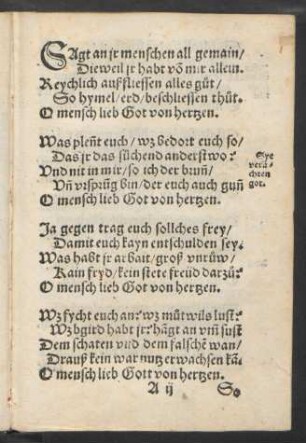 SAgt an jr menschen all gemain/
Dieweil jr habt võ mir allein.
Reychlich außfliessen alles gůt/
So hymel/erd/beschliessen thůt.
O mensch lieb Got von hertzen.
Was pleñt euch/wz bedort euch so/
Das jr das sůchend anderstwo?
Vnd nit in mir/so ich der bruñ/
Vñ vrsprũg bin/der euch auch guñ
O mensch lieb Got von hertzen.
Die
verachten
got.
Ja gegen trag euch sollches frey/
Damit euch kayn entschulden sey.
Was habt jr arbait/groß vnrůw/
Kain fryd/kein stete freüd darzů?
O mensch lieb Got von hertzen.
Wz fycht euch an? wz můtwils lust?
Wz bgird habt jr? hãgt an vm̃ sust
Dem schaten vnd dem falschẽ wan/
Drauß kein war nutz erwachsen kã.
O mensch lieb Gott von hertzen.
A ij So